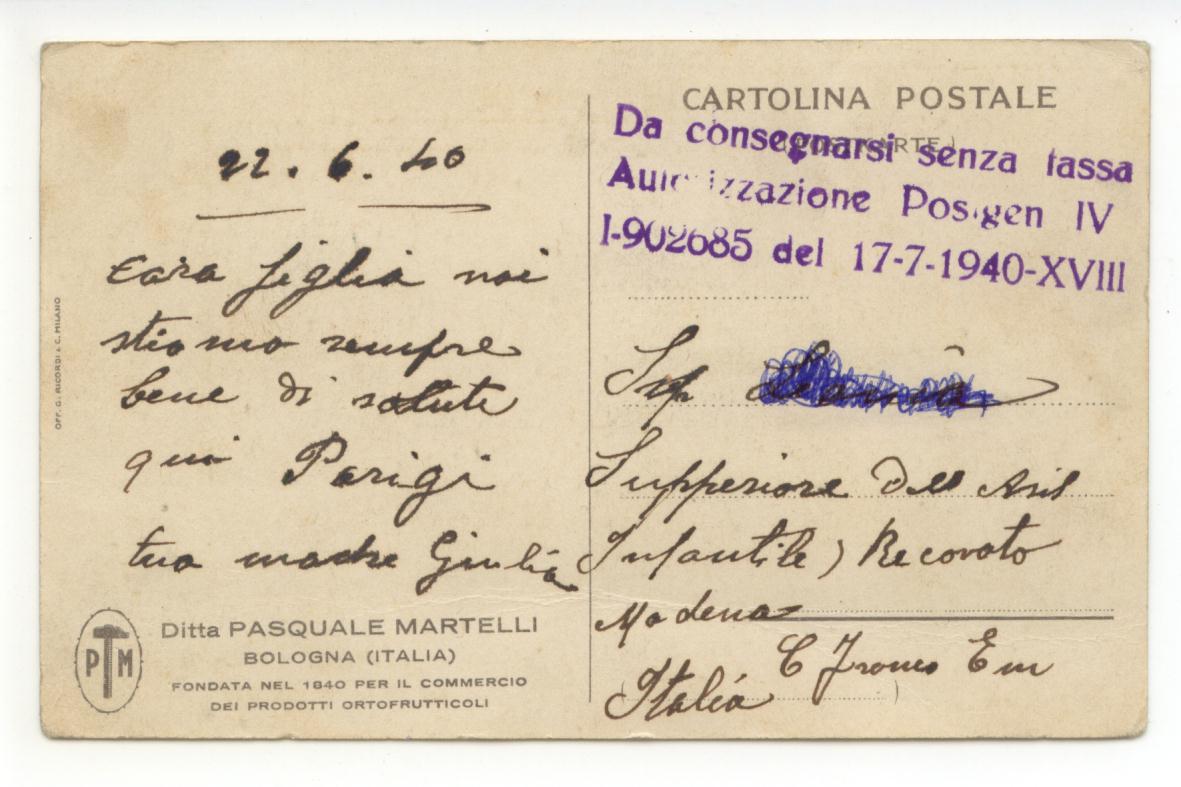 CARTOLINA POSTALE
Da consegnarsi senza tassa
Autorizzazione Posigen IV
I-902685 del 17-7-1940-XVIII
22.6.40
cara figlia noi
stiamo sempre
bene di salute
qui Parigi
tua madre Giulia
Superiore Dell Asil
Infantile) Recovato
Modena
C Franco Em
Italia
OFF. G. RICORDI & C. MILANO
PM
Ditta PASQUALE MARTELLI
BOLOGNA (ITALIA)
FONDATA NEL 1840 PER IL COMMERCIO
DEI PRODOTTI ORTOFRUTTICOLI